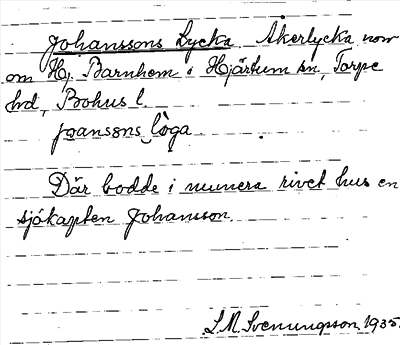 Johanssons Lycka Åkerlycka norr
om Hj. Barnhem i Hjärtum sn, Torpe
hd, Bohus l.
joansons lòga
Där bodde i numera rivet hus en
sjökapten Johansson.
S.M. Svenungsson 1935.